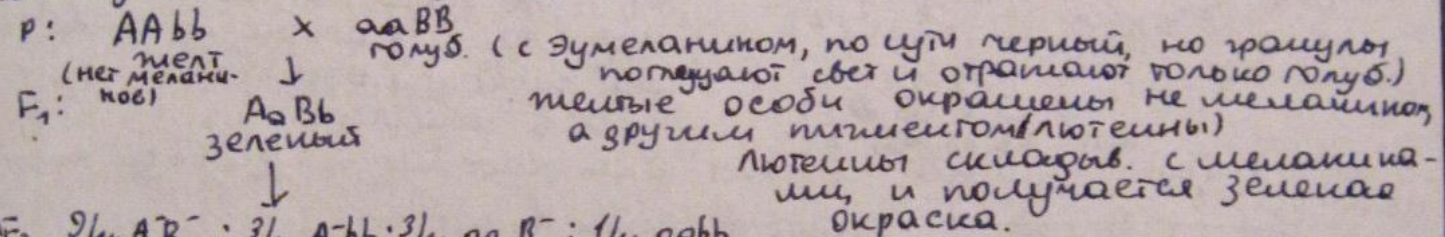 P: AAbb × aaBB
желт голуб. (с эумеланином, по сути черный, но гранулы
(нет мелани- ↓ поглущают свет и отражают только голуб.)
нов)
F₁: AaBb желтые особи окрашены не меланином,
зеленый а другим пигментом (лютеины)
↓ Лютеины складыв. с меланина-
ми, и получается зеленая
окраска.
9/16 A⁻B⁻ : 3/ A⁻bb : 3/ aaB⁻ : 1/ aabb